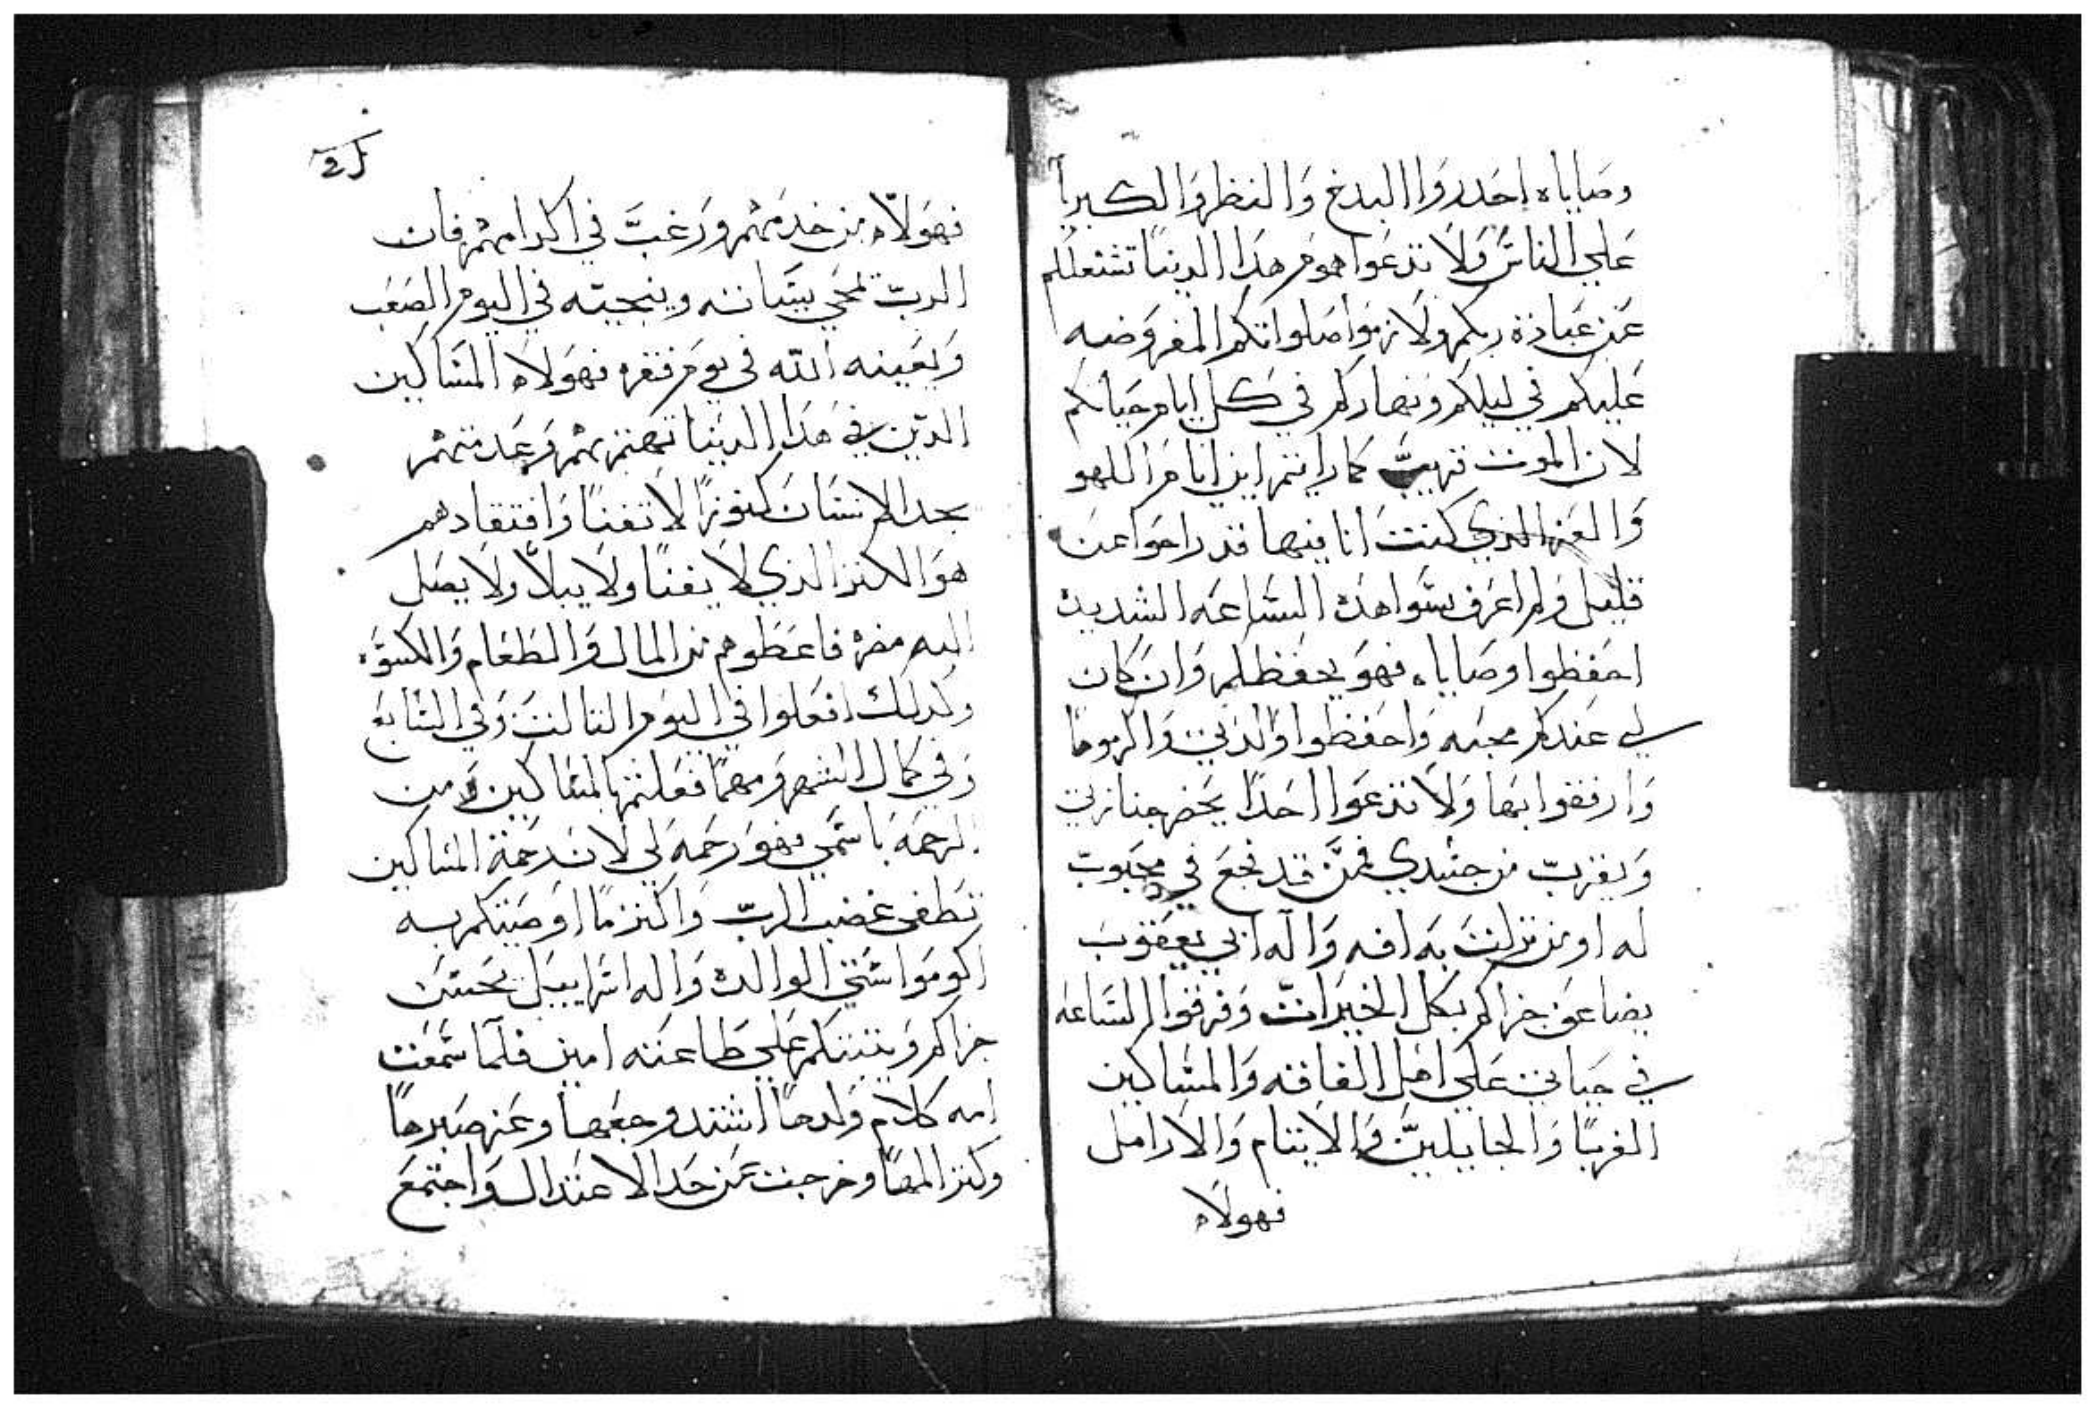 وصاياه احدروا البدخ والنظر والكبريا
علي الناس ولا تدعوا هموم هدا الدنيا تشتغلكم
عن عبادة ربكم ولازموا صلواتكم المفروضه
عليكم في ليلكم ونهاركم في كل ايام حياتكم
لان الموت قريب كما رايتم اين ايام اللهو
والعز الدي كنت انا فيها قد راحوا عن
قليل ولم اعرف سوا هده الساعه الشديده
احفظوا وصاياه فهو يحفظكم وان كان
لي عندكم محبه واحفظوا والدتي واكرموها
وارفقوا بها ولا تدعوا احدا يحضر جنازتي
ويقرب من جسدي فمن قد فجع في محبوب
له او من نزلت به افه واله ابي يعقوب
يضاعف جزاكم بكل الخيرات وفرقوا الساعه
في حياتي علي اهل الفاقه والمساكين
الغربا والجايليين والايتام والارامل
فهولاه
فهولاه من خدمهم ورغب في اكرامهم فان
الرب تمحي سياته وينجيه في اليوم الصعب
ويعينه الله في يوم فقره فهولاه المساكين
الدين في هدا الدنيا تهتم بهم وخدمتهم
يجد الانسان كنوزا لا تفنا وافتقادهم
هو الكنز الدي لا يفنا ولا يبلا ولا يصل
اليه مضره فاعطوهم من المال والطعام والكسوه
وكدلك افعلوا في اليوم التالت وفي السابع
وفي كمال الشهر ومهما فعلتم بالمساكين من
الرحمه باسمي فهو رحمه لي لان رحمة المساكين
تطفي غضب الرب واكتر ما اوصيتكم به
اكرموا ستي الوالده واله اسراييل يحسن
جزاكم ويتبتكم علي طاعته امين فلما سمعت
امه كلام ولدها اشتد وجعها وعز صبرها
وكتر المها وخرجت عن حد الاعتدال واجتمع